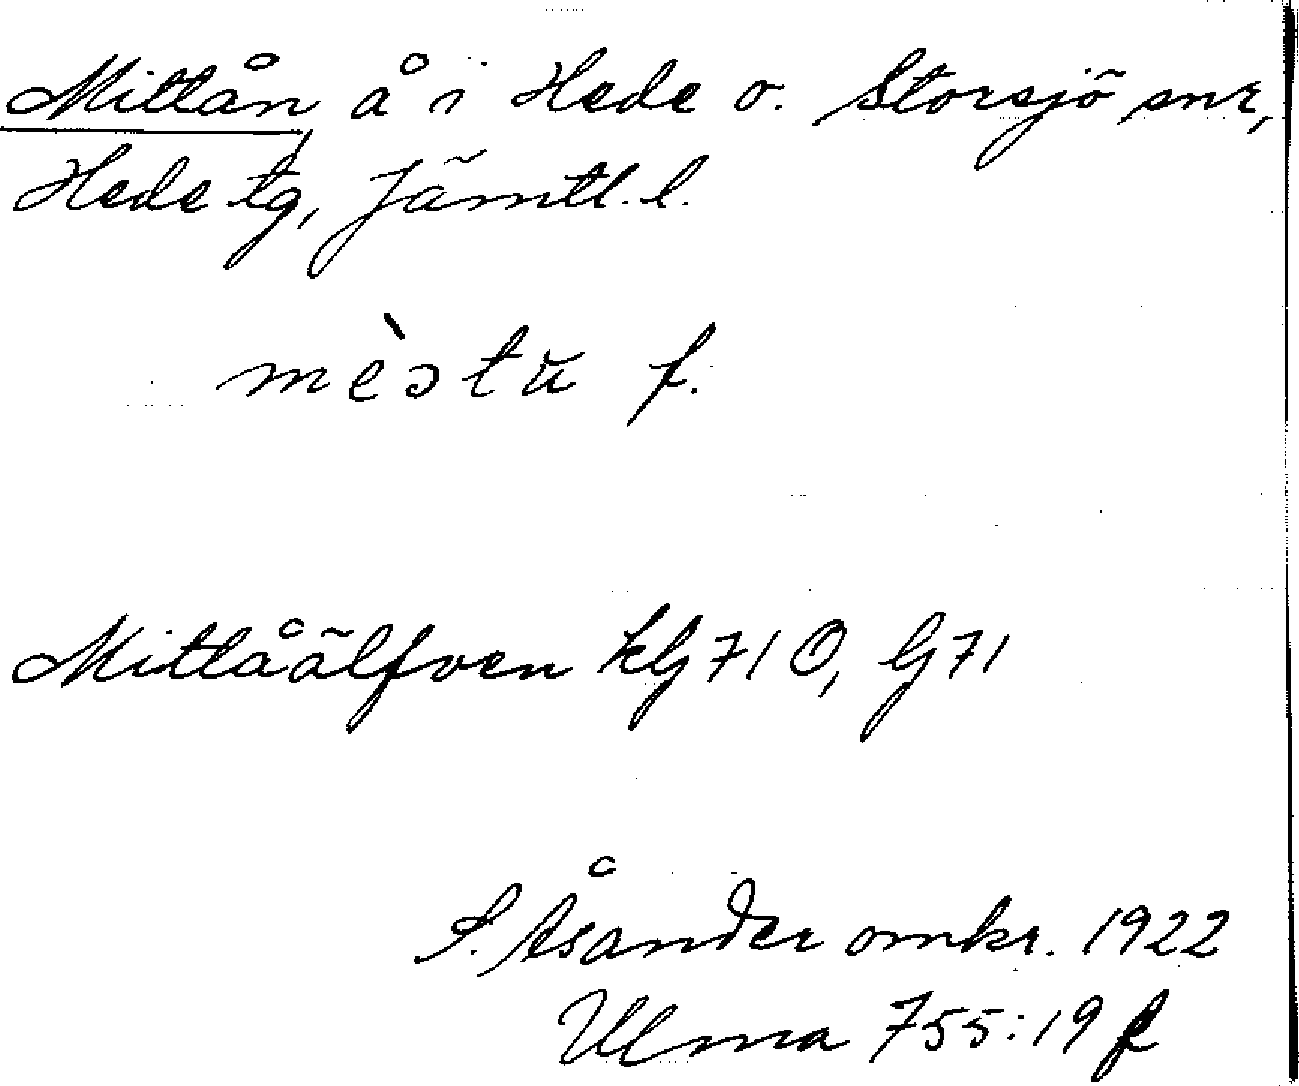 Mittån å i Hede o. Storsjö snr,
Hede tg, Jämtl. l.
mèstu f.
Mittåälfven kG 71 O, G 71
S. Åsander omkr. 1922
Ulma 755:19 f